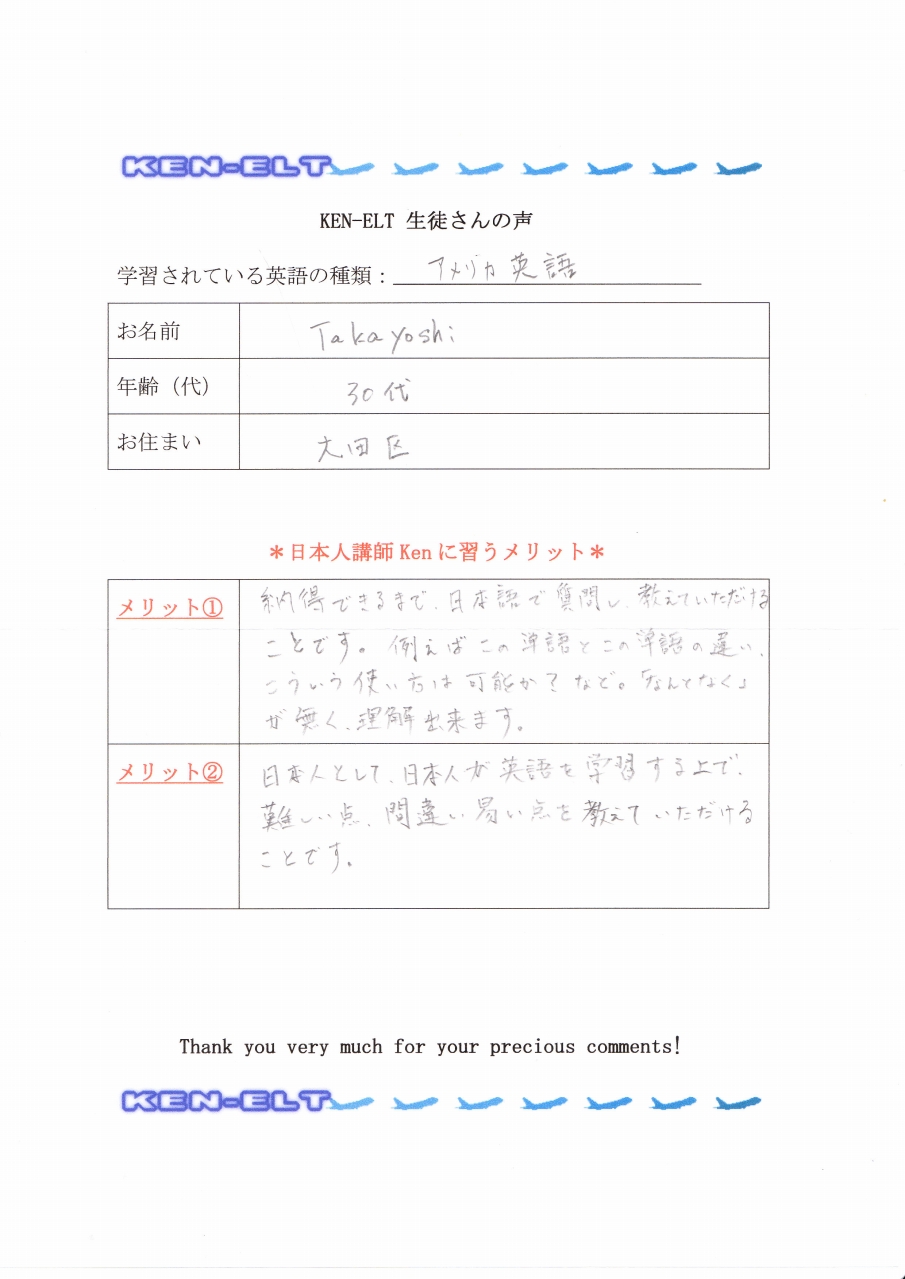 KEN-ELT
KEN-ELT 生徒さんの声
学習されている英語の種類：アメリカ英語
お名前 Takayoshi
年齢（代） 30代
お住まい 大田区
＊日本人講師Kenに習うメリット＊
メリット① 納得できるまで、日本語で質問し、教えていただける
ことです。例えばこの単語とこの単語の違い、
こういう使い方は可能か？など。「なんとなく」
が無く、理解出来ます。
メリット② 日本人として、日本人が英語を学習する上で、
難しい点、間違い易い点を教えていただける
ことです。
Thank you very much for your precious comments!
KEN-ELT